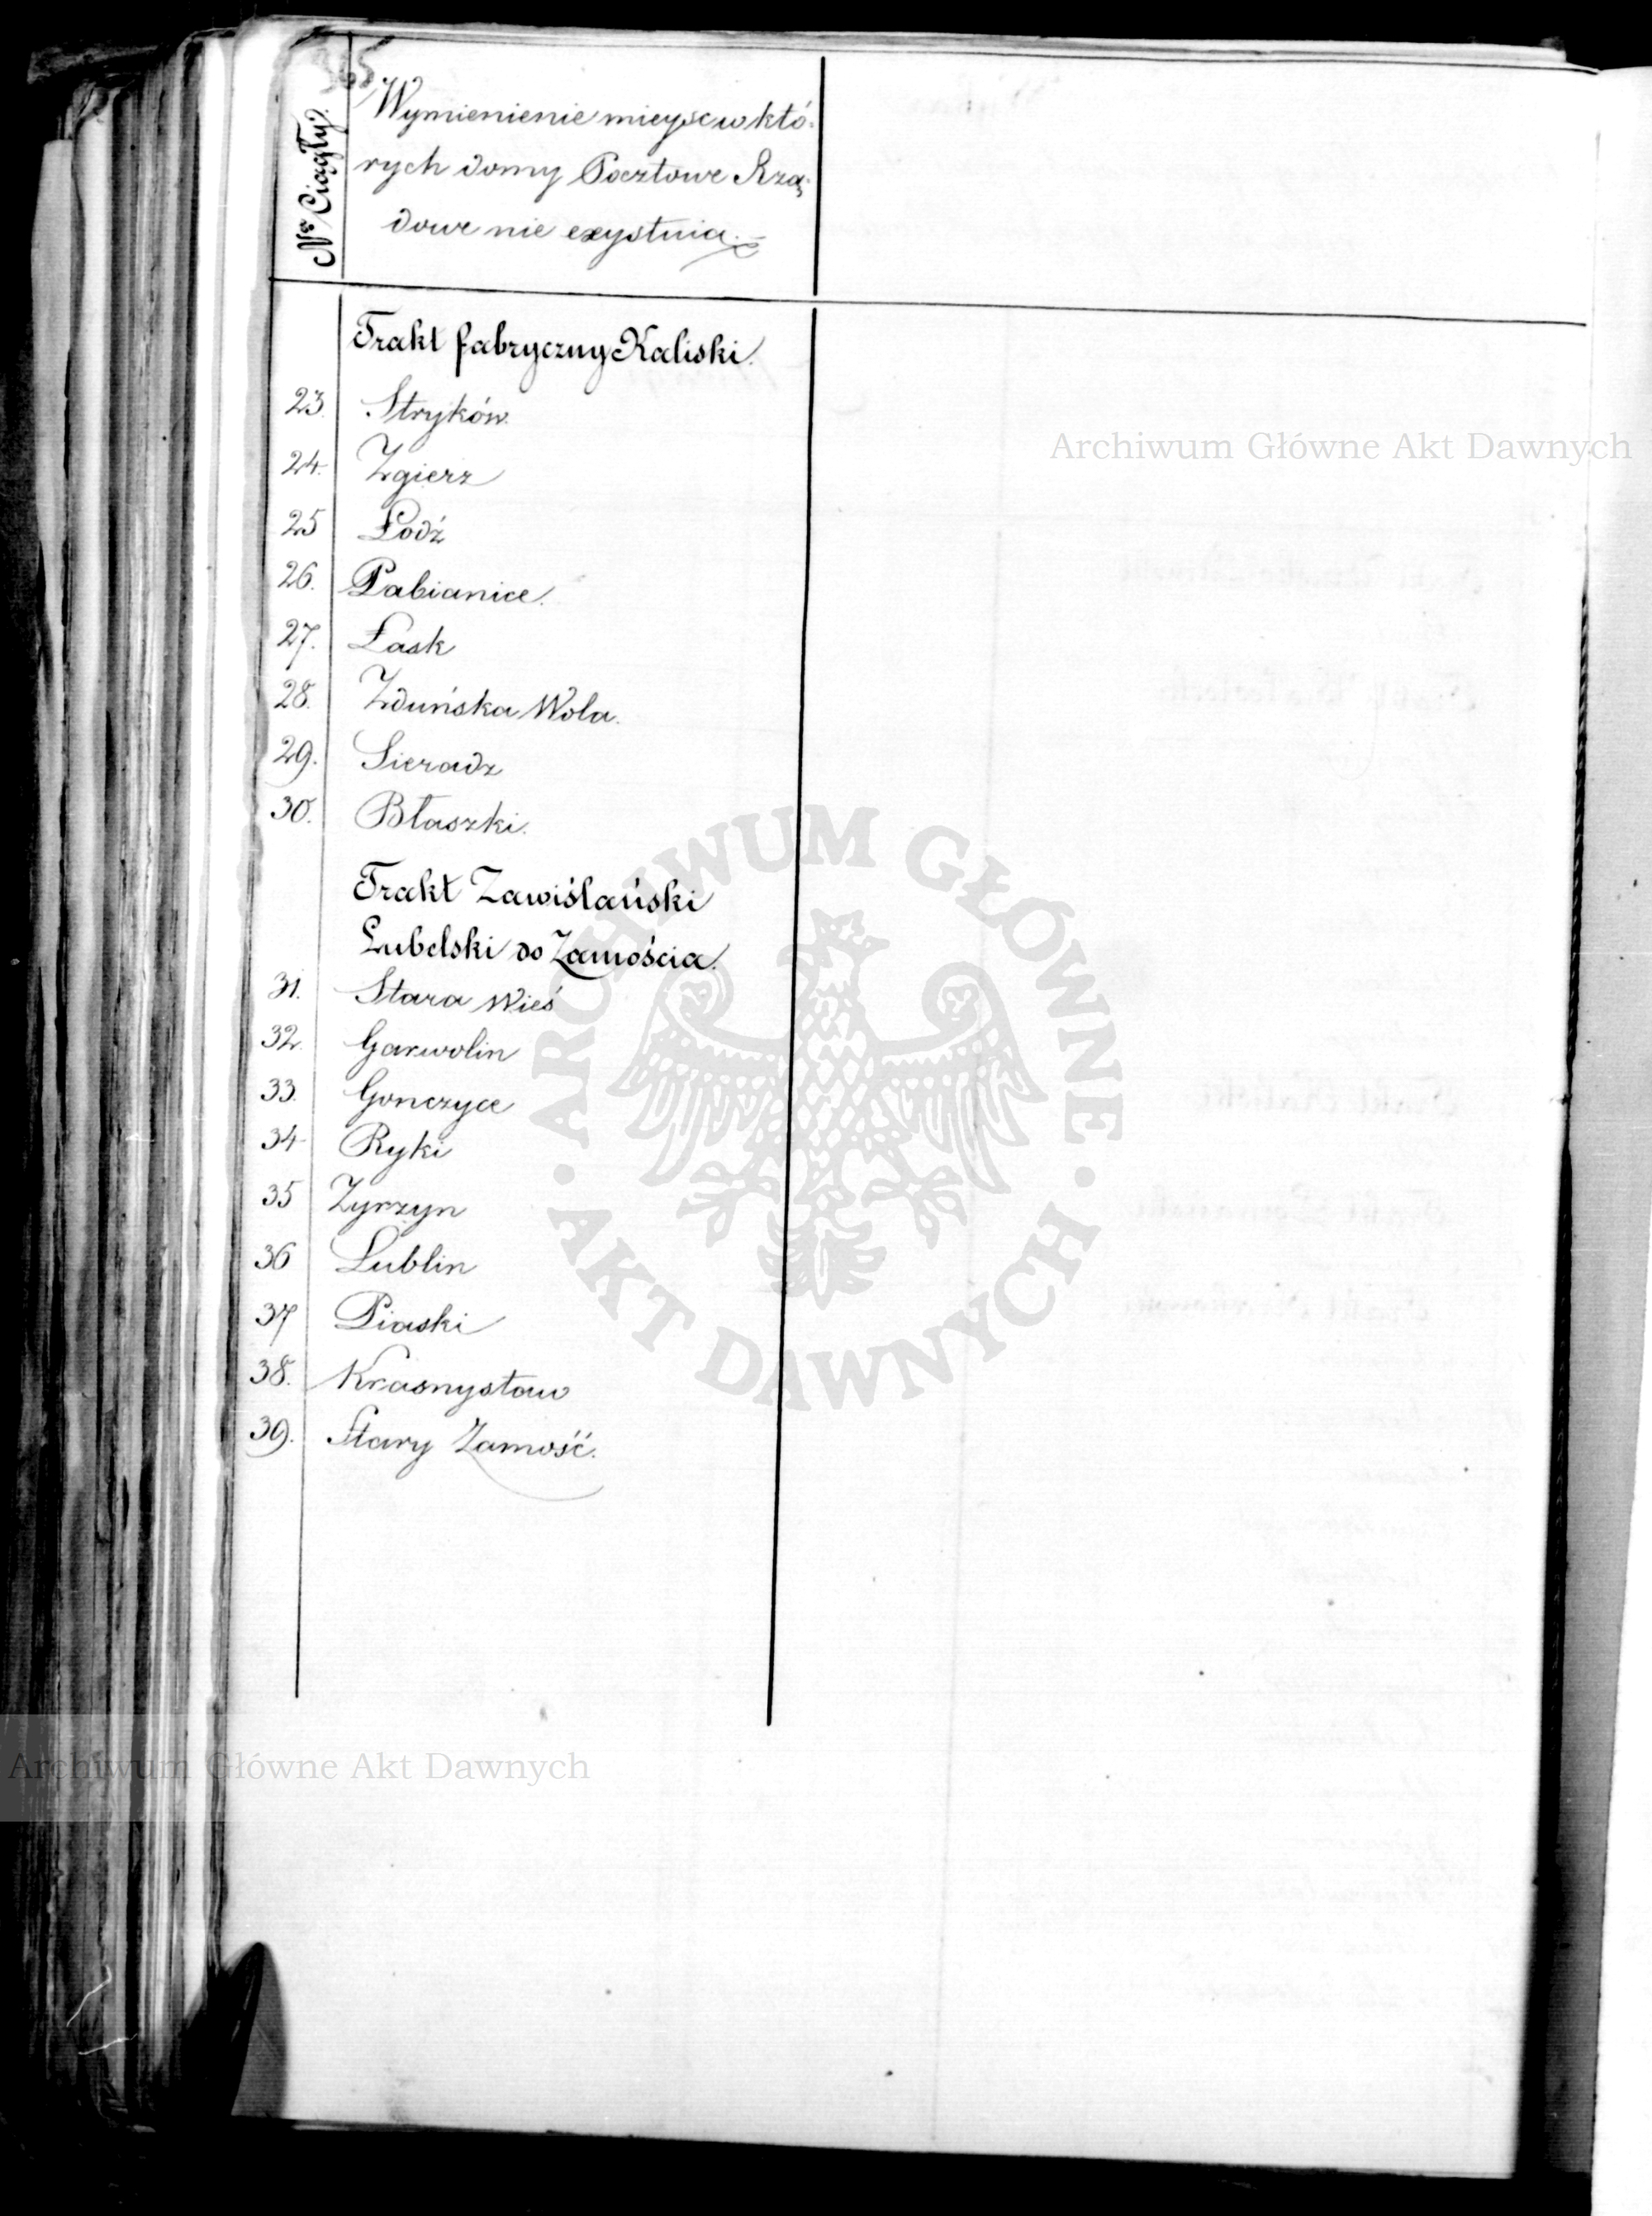 365
Nr Ciągły.
Wymienienie mieysc w któ-
rych domy Pocztowe Rzą-
dowe nie exystuią.
Trakt fabryczny Kaliski.
23. Stryków.
24. Zgierz
25 Łodź
26. Pabianice.
27. Łask
28. Zduńska Wola.
29. Sieradz
30. Błaszki.
Trakt Zawiślański
Lubelski do Zamościa.
31. Stara Wieś
32. Garwolin
33. Gonczyce
34 Ryki
35 Zyrzyn
36 Lublin
37 Piaski
38. Krasnystaw
39. Stary Zamość.
Archiwum Główne Akt Dawnych
ARCHIWUM GŁÓWNE AKT DAWNYCH
Archiwum Główne Akt Dawnych